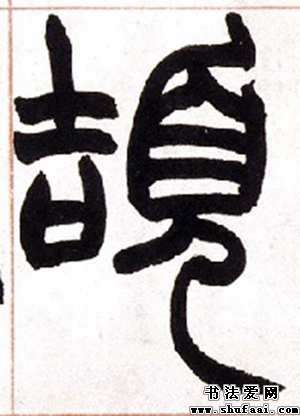 頡
书法爱网
www.shufaai.com